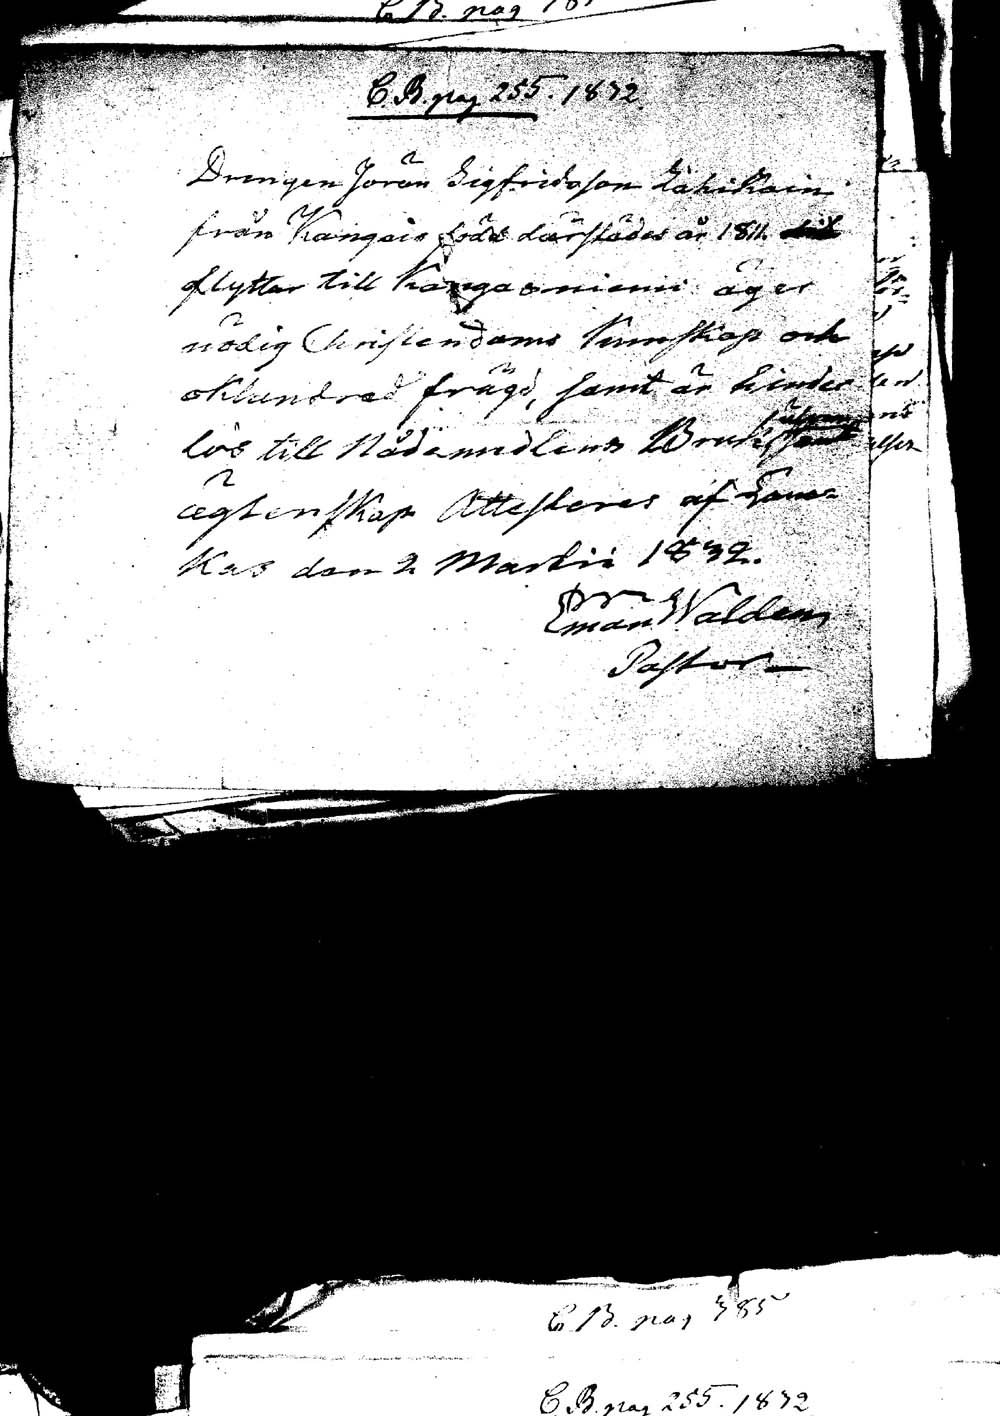 C. B. pag
C. B. pag 255. 1832
Drengen Jöran Sigfridsson Lähikain
från Kangais född därstädes år 1811
flyttar till Kangasniemi äger
nödig Christendoms Kunskap och
oklandrad frägd, samt är hinder
lös till Nådamedlens Bruk, såsom
ägtenskap Attesteres af Lau-
kas den 2 Martii 1832.
Eman Walden
Pastor
C. B. pag 385
C. B. pag 255. 1832